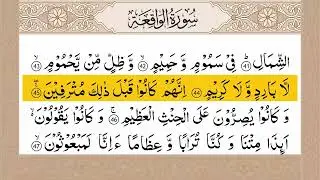 سُورَةُ الْوَاقِعَةِ
الشِّمَالِ ﴿41﴾ فِيْ سَمُوْمٍ وَّ حَمِيْمٍ ﴿42﴾ وَّ ظِلٍّ مِّنْ يَّحْمُوْمٍ ﴿43﴾
لَّا بَارِدٍ وَّ لَا كَرِيْمٍ ﴿44﴾ اِنَّهُمْ كَانُوْا قَبْلَ ذٰلِكَ مُتْرَفِيْنَ ﴿45﴾
وَ كَانُوْا يُصِرُّوْنَ عَلَى الْحِنْثِ الْعَظِيْمِ ﴿46﴾ وَ كَانُوْا يَقُوْلُوْنَ
اَىِٕذَا مِتْنَا وَ كُنَّا تُرَابًا وَّ عِظَامًا ءَاِنَّا لَمَبْعُوْثُوْنَ ﴿47﴾